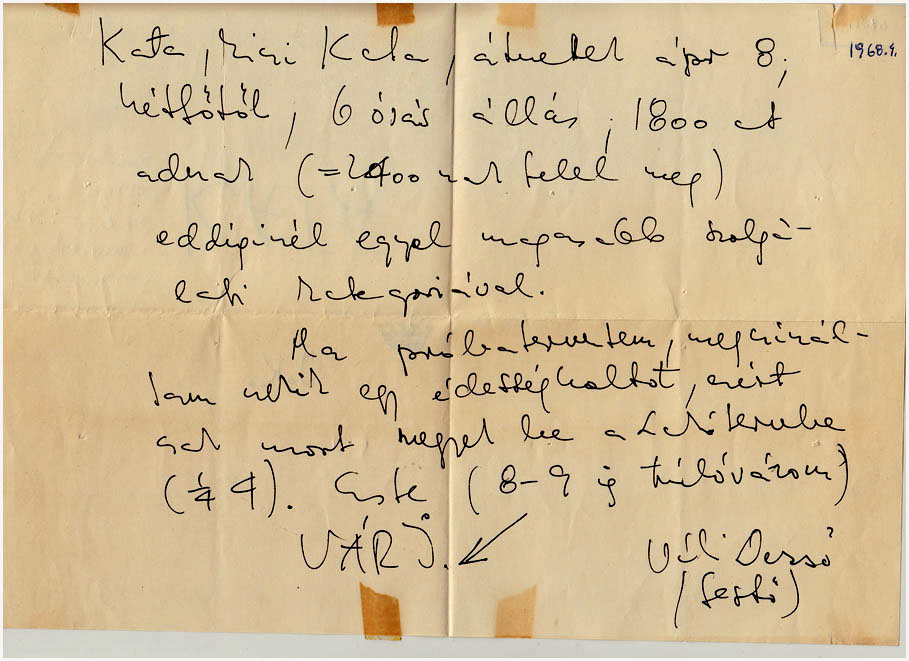 1968.4.
Kata, kicsi Kata, átvettek ápr 8,
hétfőtől, 6 órás állás, 1800 at
adnak (=2400 nak felel meg)
eddiginél egyel magasabb szolgá-
lati kategoriával.
Ma próbaterveztem, megcsinál-
tam nekik egy édességboltot, ezért
csak most megyek be a Lakótervbe
(1/4 4). Este (8-9 ig túlóvárom)
VÁRJ.
Váli Dezső
(festő)